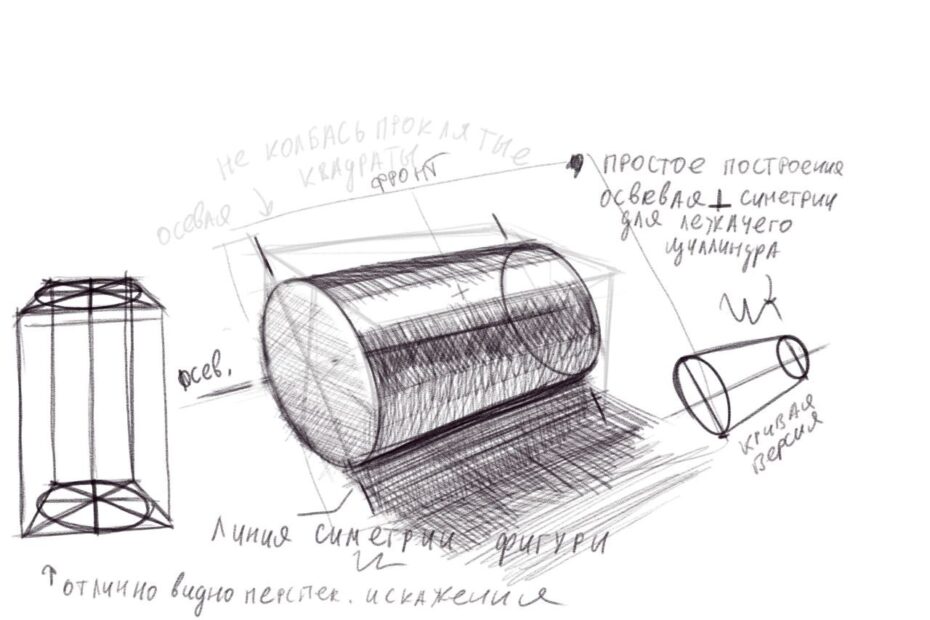 не колбась проклятые
квадраты
фронт
осевая
простое построения
осве̶вая ⊥ симетрии
для лежачего
циллиндра
осев.
кривая
версия
Линия симетрии фигуры
↑ отлично видно перспек. искажения